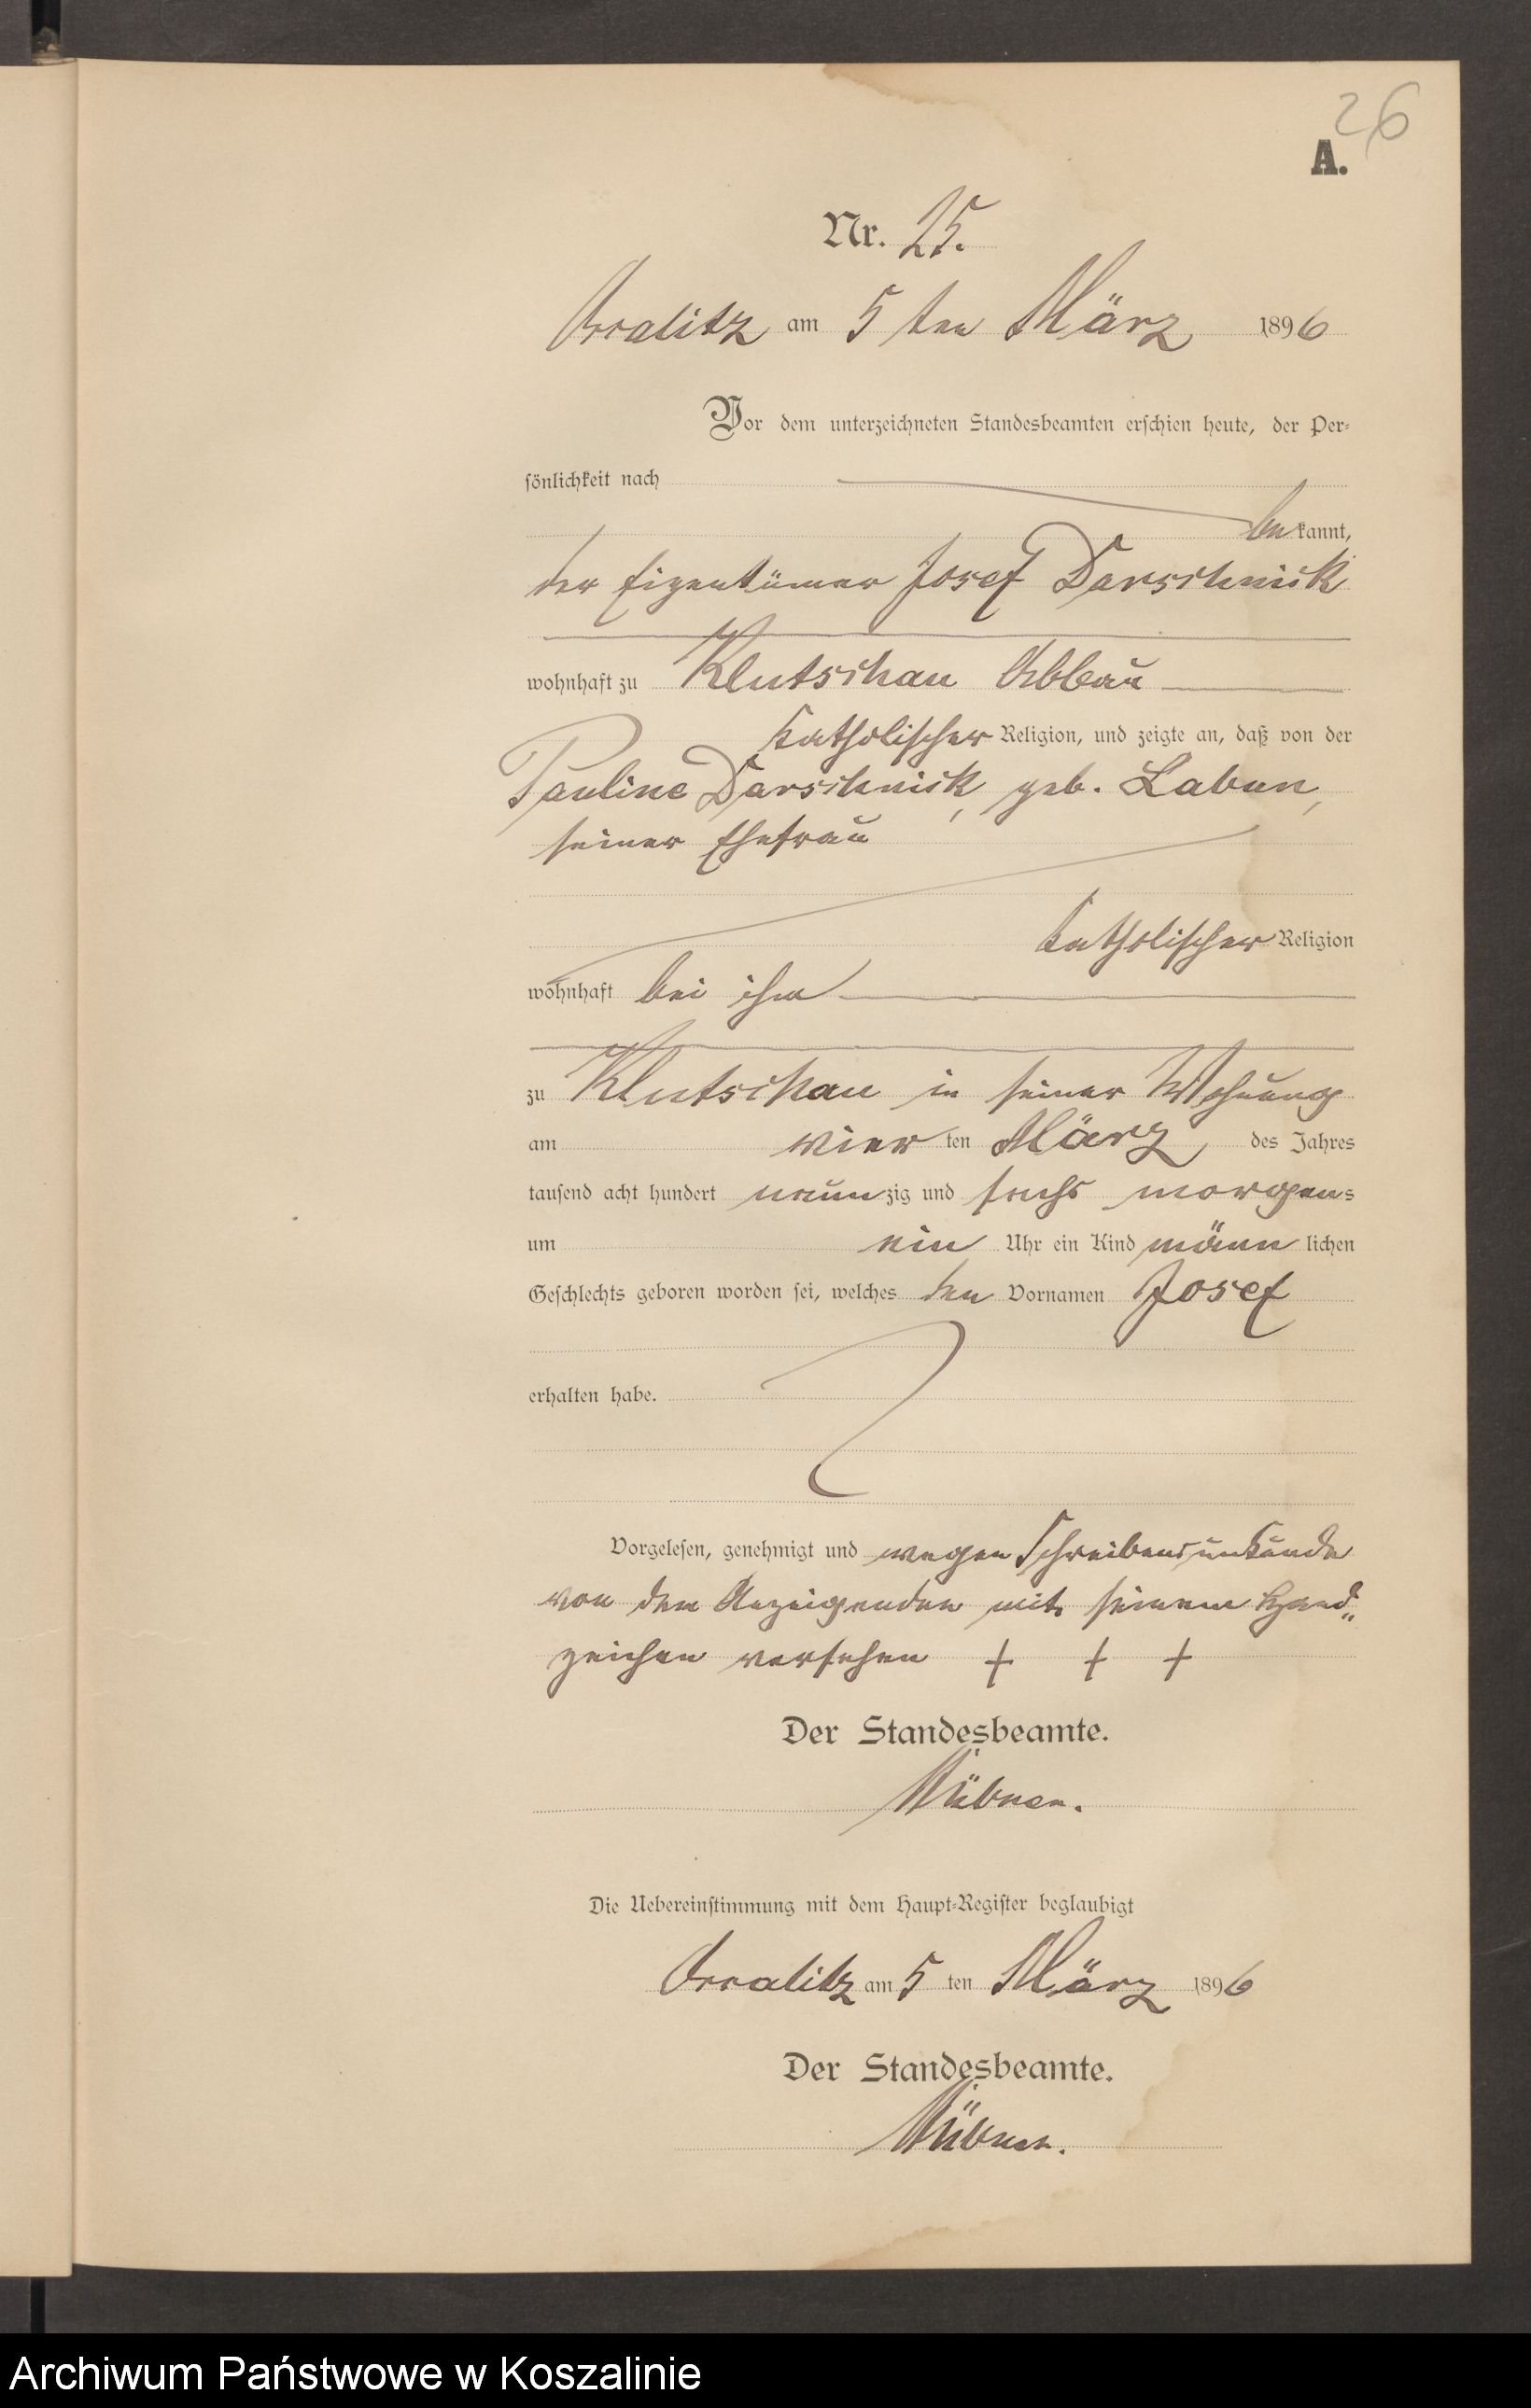 26
A.
Nr. 25.
Orralitz am 5 ten März 1896
Vor dem unterzeichneten Standesbeamten erschien heute, der Per-
sönlichkeit nach
bekannt,
der Eigentümer Josef Darschnick
wohnhaft zu Klutschau Abbau
katholischer Religion, und zeigte an, daß von der
Pauline Darschnick, geb. Labun,
seiner Ehefrau
katholischer Religion
wohnhaft bei ihm
zu Klutschau in seiner Wohnung
am vier ten März des Jahres
tausend acht hundert neunzig und sechs morgens
um ein Uhr ein Kind männlichen
Geschlechts geboren worden sei, welches den Vornamen Josef
erhalten habe.
Vorgelesen, genehmigt und wegen Schreibensunkunde
von dem Anzeigenden mit seinem Hand„
zeichen versehen + + +
Der Standesbeamte.
Die Uebereinstimmung mit dem Haupt-Register beglaubigt
Orralitz am 5 ten März 1896
Der Standesbeamte.
Archiwum Państwowe w Koszalinie